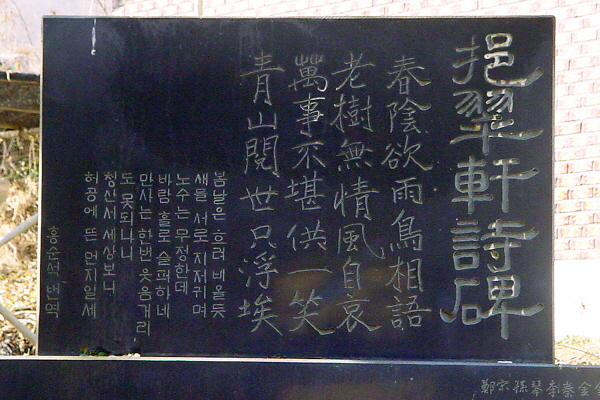 挹翠軒詩碑
春陰欲雨鳥相語
老樹無情風自哀
萬事不堪供一笑
青山閱世只浮埃
봄날은 흐려 비올듯
새들 서로 지저귀며
노수는 무정한데
바람 홀로 슬퍼하네
만사는 한번 웃음거리
도 못되나니
청산서 세상보니
허공에 뜬 먼지일세
홍순석 번역
鄭宗孫琴李秦金金